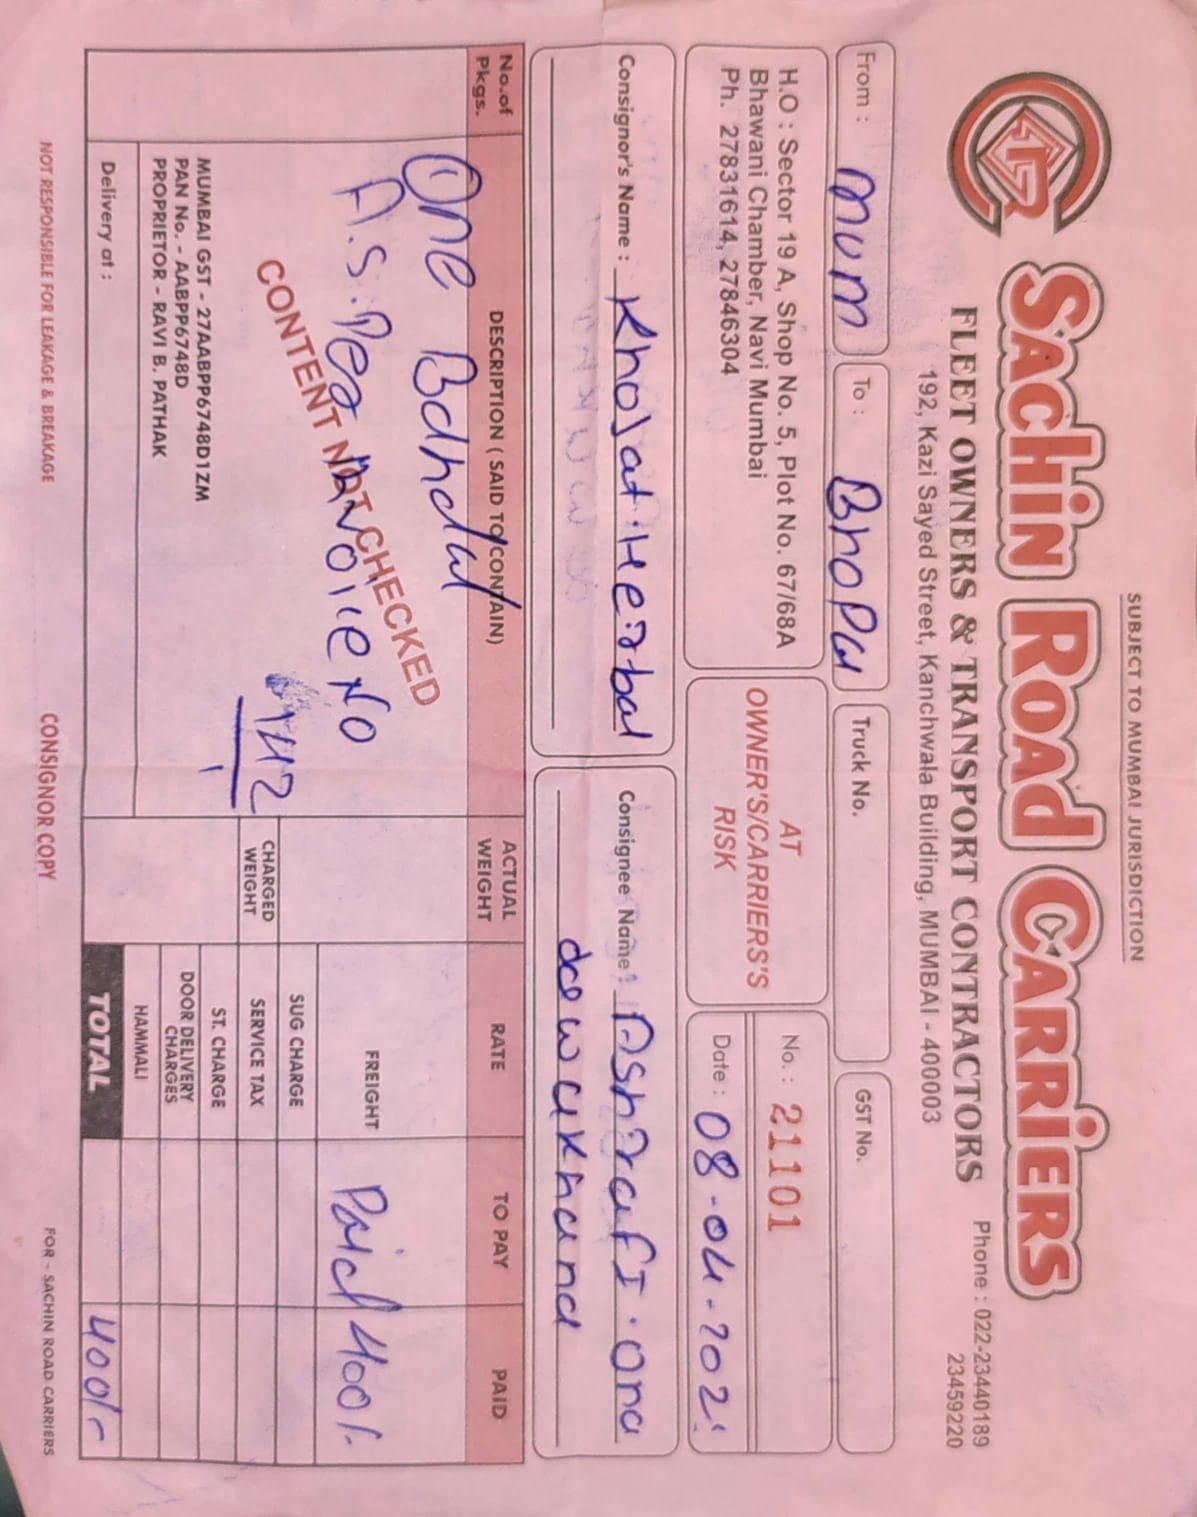 SUBJECT TO MUMBAI JURISDICTION
SACHIN ROAD CARRIERS
FLEET OWNERS & TRANSPORT CONTRACTORS
Phone : 022-23440189
23459220
192, Kazi Sayed Street, Kanchwala Building, MUMBAI - 400003
From : mum
To : BhoPal
Truck No.
GST No.
H.O : Sector 19 A, Shop No. 5, Plot No. 67/68A
Bhawani Chamber, Navi Mumbai
Ph. 27831614, 27846304
AT
OWNER'S/CARRIERS'S
RISK
No. : 21101
Date : 08-04-202
Consignor's Name : Khojat.Herbal
Consignee Name : AShrafI.and
dawakhana
No.of Pkgs.
DESCRIPTION ( SAID TO CONTAIN)
ACTUAL WEIGHT
RATE
TO PAY
PAID
One
A.S.Per INVOICE NO
142
CONTENT NOT CHECKED
CHARGED WEIGHT
FREIGHT
Paid 400/-
SUG CHARGE
SERVICE TAX
ST. CHARGE
DOOR DELIVERY CHARGES
HAMMALI
TOTAL
400/-
MUMBAI GST - 27AABPP6748D1ZM
PAN No. - AABPP6748D
PROPRIETOR - RAVI B. PATHAK
Delivery at :
NOT RESPONSIBLE FOR LEAKAGE & BREAKAGE
CONSIGNOR COPY
FOR - SACHIN ROAD CARRIERS